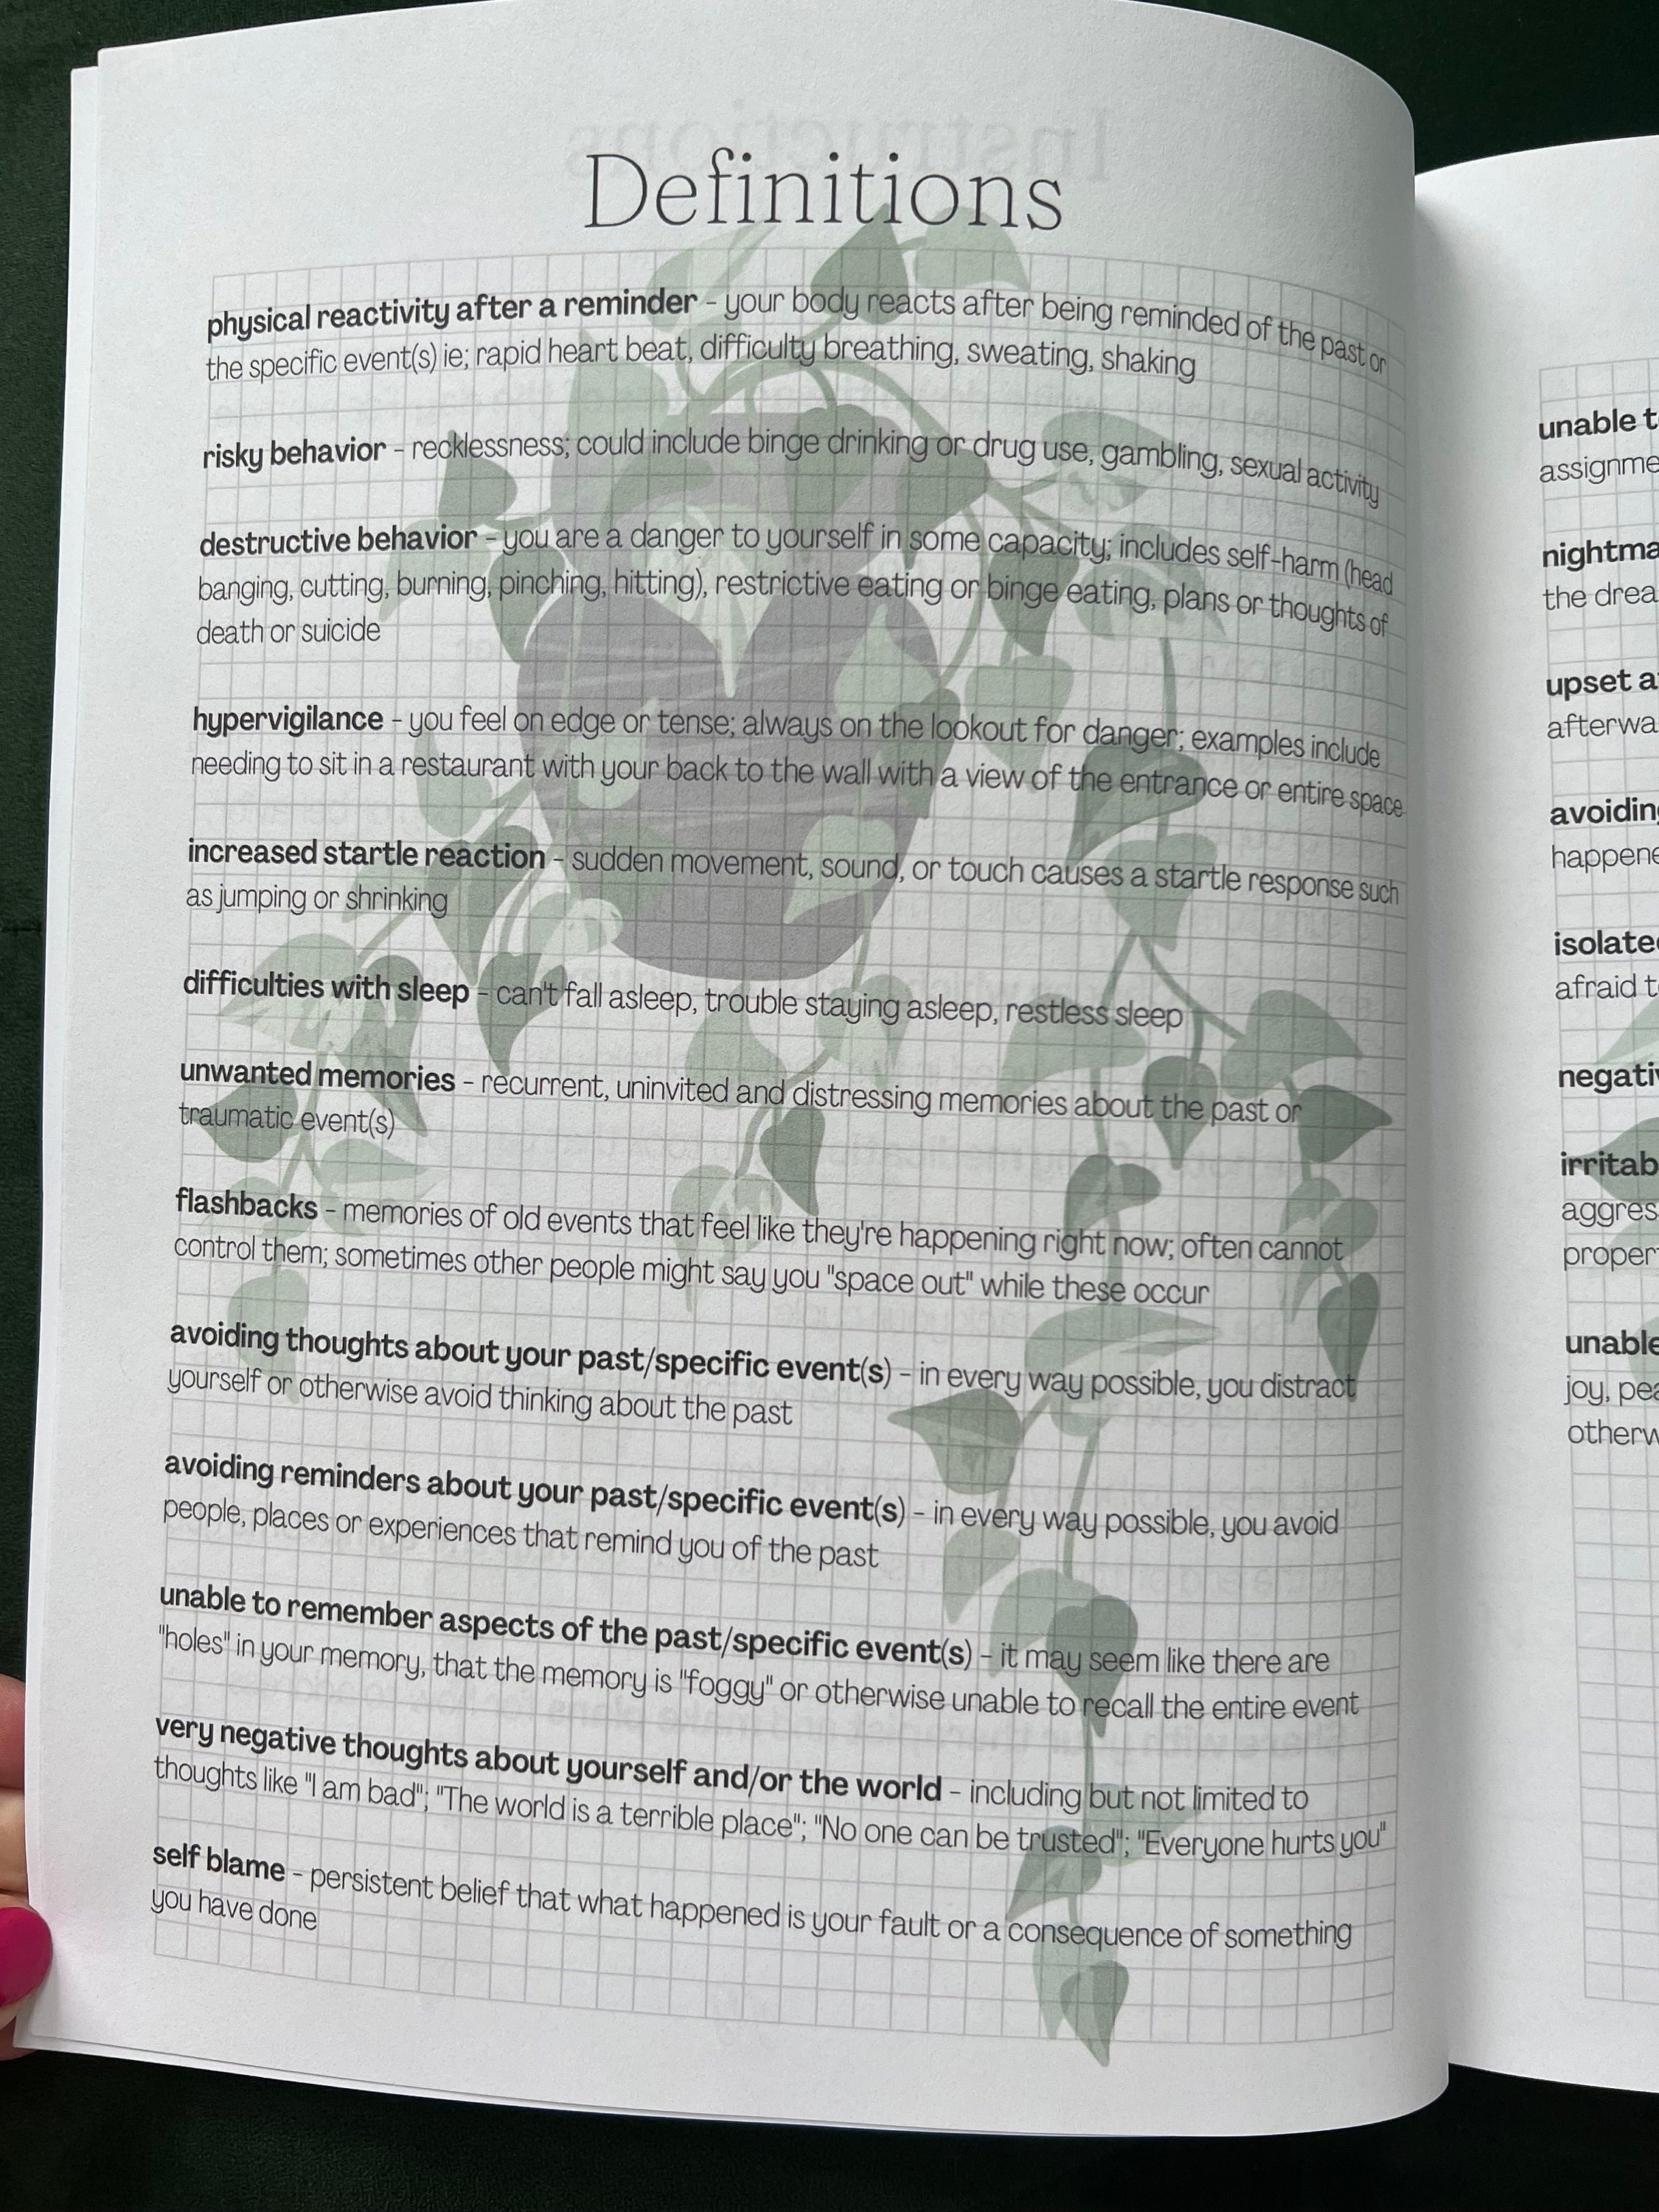 Definitions
physical reactivity after a reminder - your body reacts after being reminded of the past or
the specific event(s) ie; rapid heart beat, difficulty breathing, sweating, shaking
risky behavior - recklessness; could include binge drinking or drug use, gambling, sexual activity
destructive behavior - you are a danger to yourself in some capacity; includes self-harm (head
banging, cutting, burning, pinching, hitting), restrictive eating or binge eating, plans or thoughts of
death or suicide
hypervigilance - you feel on edge or tense; always on the lookout for danger; examples include
needing to sit in a restaurant with your back to the wall with a view of the entrance or entire space
increased startle reaction - sudden movement, sound, or touch causes a startle response such
as jumping or shrinking
difficulties with sleep - can't fall asleep, trouble staying asleep, restless sleep
unwanted memories - recurrent, uninvited and distressing memories about the past or
traumatic event(s)
flashbacks - memories of old events that feel like they're happening right now; often cannot
control them; sometimes other people might say you "space out" while these occur
avoiding thoughts about your past/specific event(s) - in every way possible, you distract
yourself or otherwise avoid thinking about the past
avoiding reminders about your past/specific event(s) - in every way possible, you avoid
people, places or experiences that remind you of the past
unable to remember aspects of the past/specific event(s) - it may seem like there are
"holes" in your memory, that the memory is "foggy" or otherwise unable to recall the entire event
very negative thoughts about yourself and/or the world - including but not limited to
thoughts like "I am bad"; "The world is a terrible place"; "No one can be trusted"; "Everyone hurts you"
self blame - persistent belief that what happened is your fault or a consequence of something
you have done
unable
the
upset
avoiding
afraid
unable
joy,